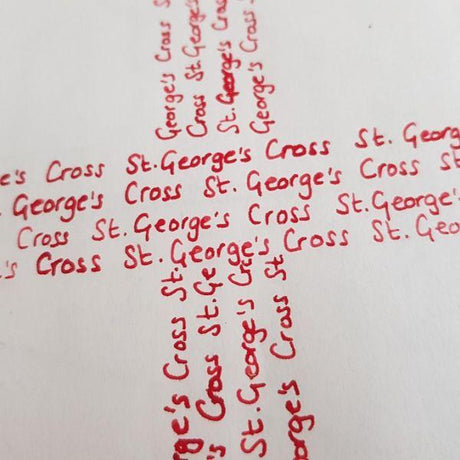 George's Cross S
Cross St. George's
St. George's Cros
George's Cross S
e's Cross St. George's Cross St. Georg
. George's Cross St. George's Cross St
Cross St. George's Cross St. George's
's Cross St. George's Cross St. Geo
rge's Cross St.
s Cross St. Ge
St. George's C
orge's Cross St